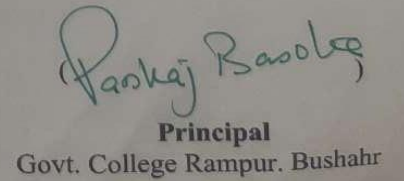 (Pankaj Basotra)
Principal
Govt. College Rampur. Bushahr